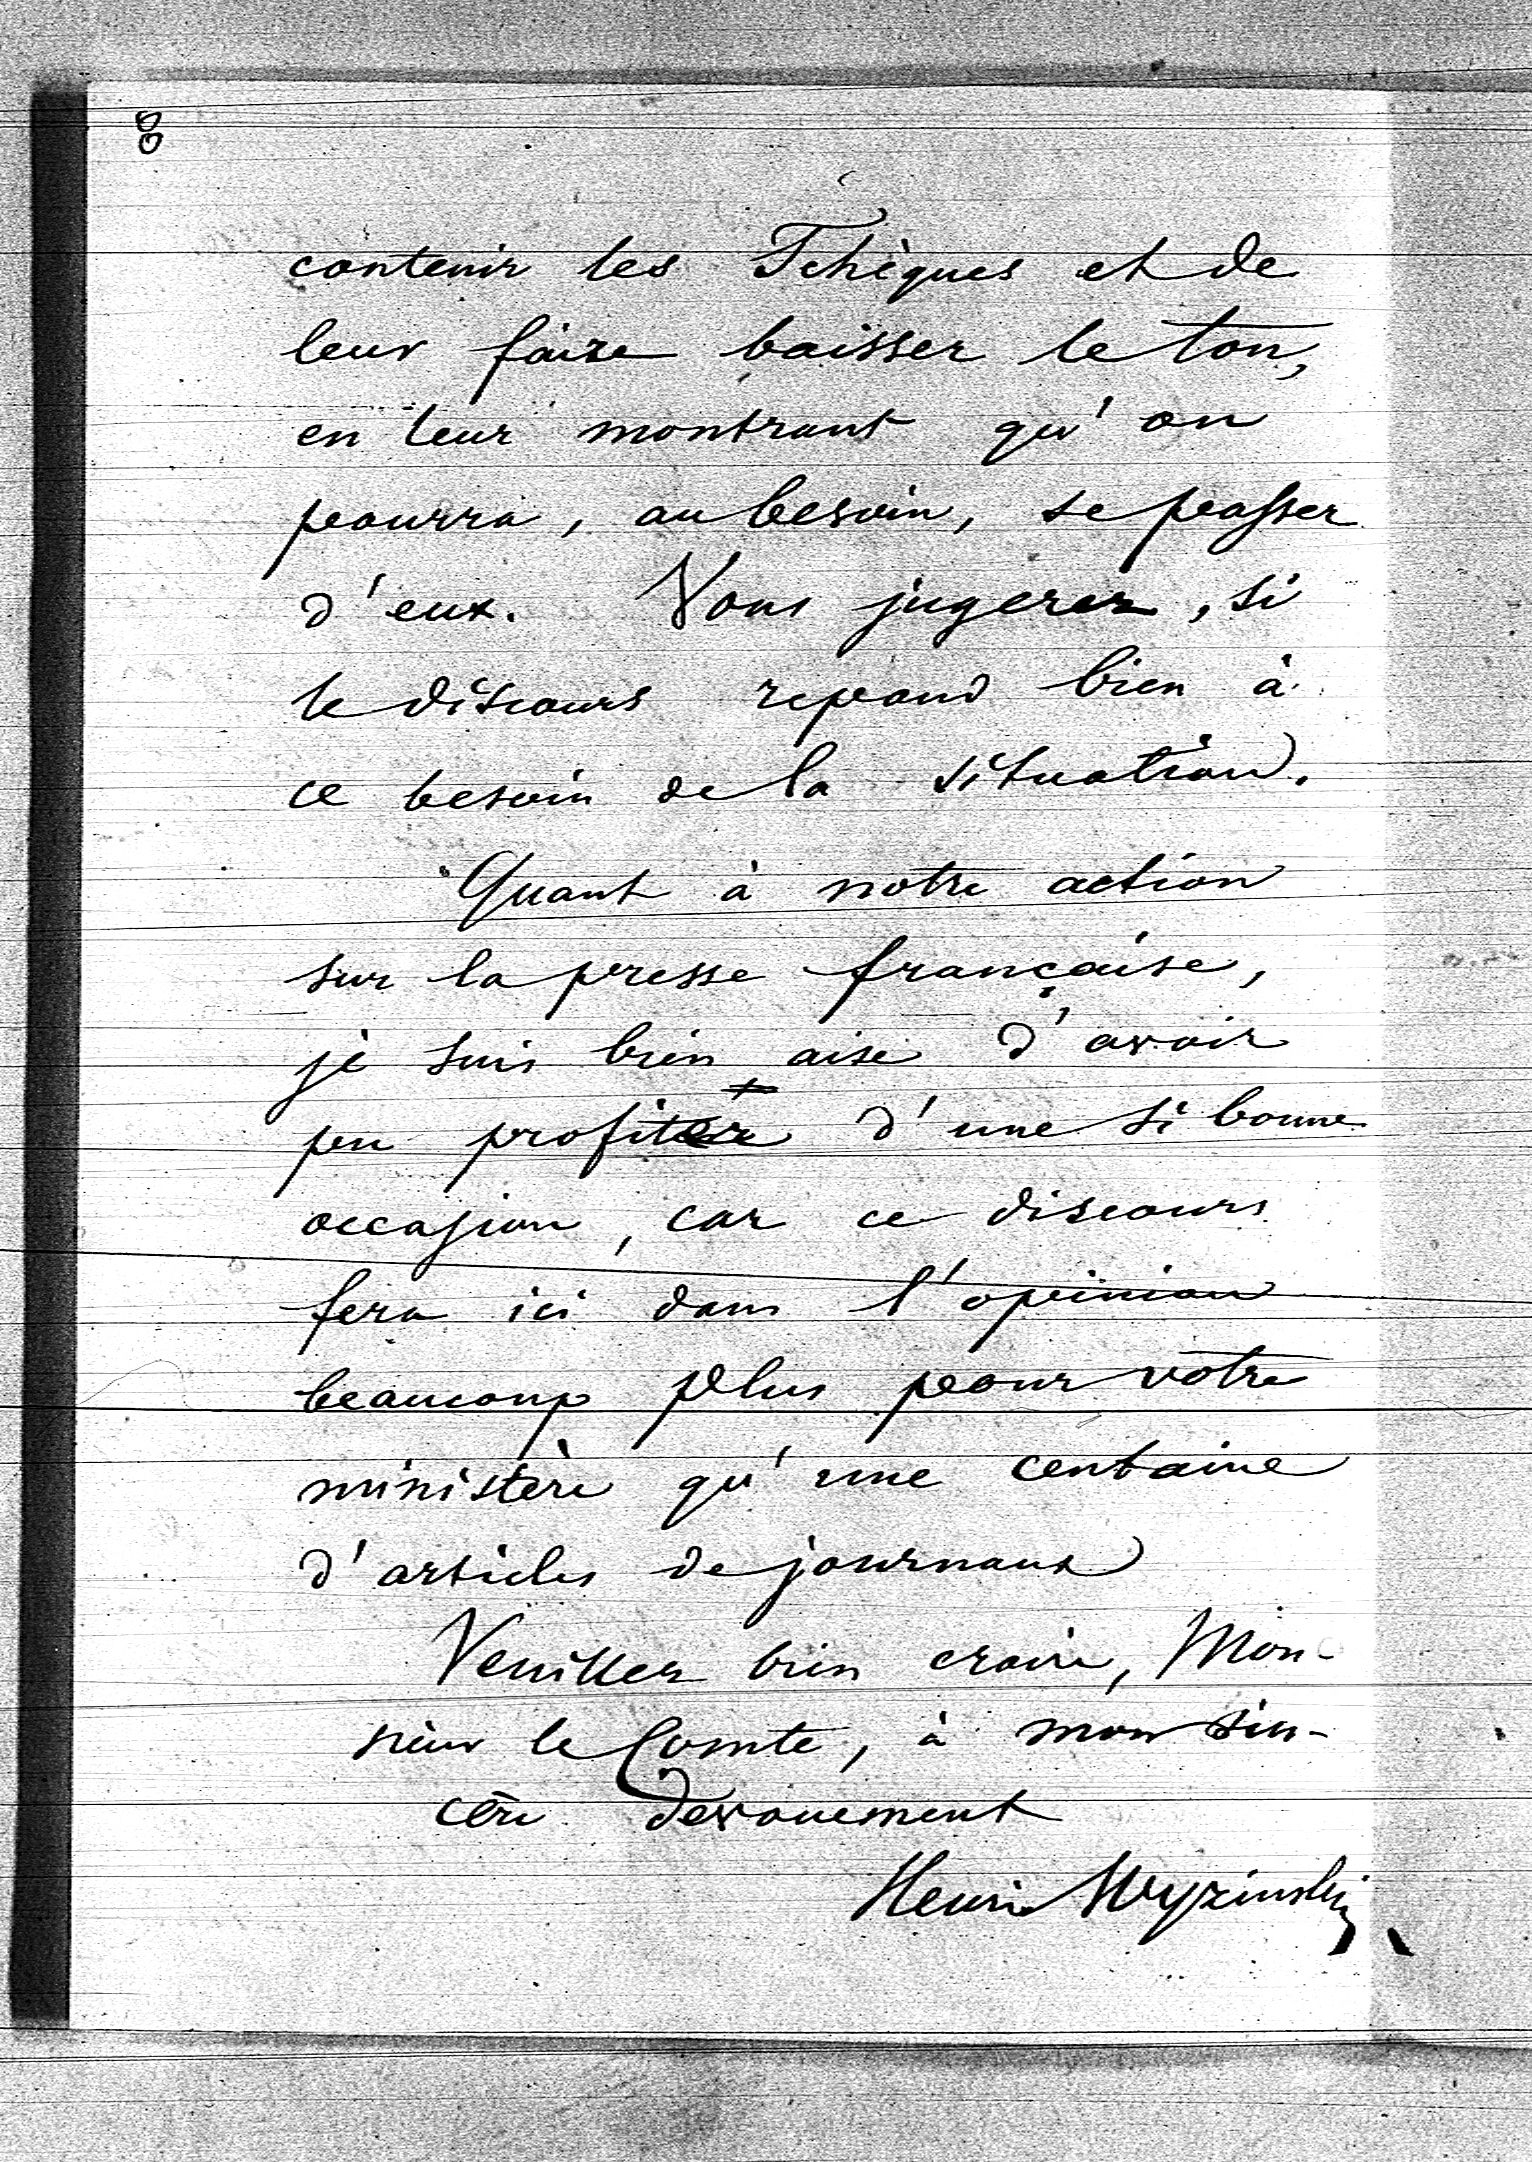 8
contenir les Tchèques et de
leur faire baisser le ton,
en leur montrant qu'on
pourra, au besoin, se passer
d'eux. Vous jugerez, si
le discours repond bien à
ce besoin de la situation.
Quant à notre action
sur la presse française,
je suis bien aise d'avoir
pu profiter d'une si bonne
occasion, car ce discours
fera ici dans l'opinion
beaucoup plus pour votre
ministère qu'une centaine
d'articles de journaux
Veuillez bien croire, Mon-
sieur le Comte, à mon sin-
cère devouement
Henri Wyzinski